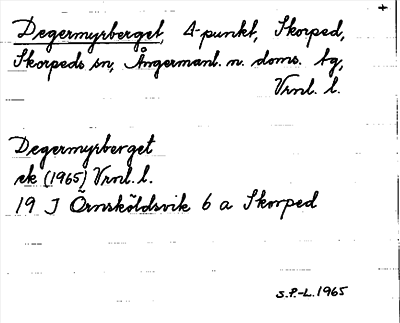 Degermyrberget, Δ-punkt, Skorped,
Skorpeds sn, Ångermanl. n. doms. tg,
Vrnl. l.
Degermyrberget
ek (1965) Vrnl. l.
19 J Örnsköldsvik 6 a Skorped
S.P.-L. 1965